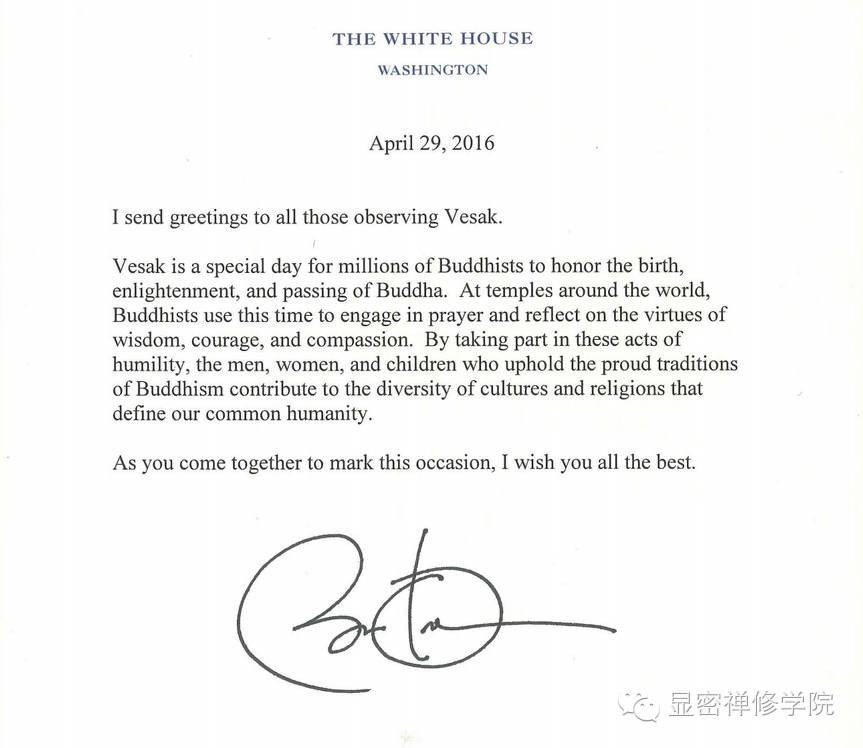 THE WHITE HOUSE
WASHINGTON
April 29, 2016
I send greetings to all those observing Vesak.
Vesak is a special day for millions of Buddhists to honor the birth,
enlightenment, and passing of Buddha.  At temples around the world,
Buddhists use this time to engage in prayer and reflect on the virtues of
wisdom, courage, and compassion.  By taking part in these acts of
humility, the men, women, and children who uphold the proud traditions
of Buddhism contribute to the diversity of cultures and religions that
define our common humanity.
As you come together to mark this occasion, I wish you all the best.
显密禅修学院